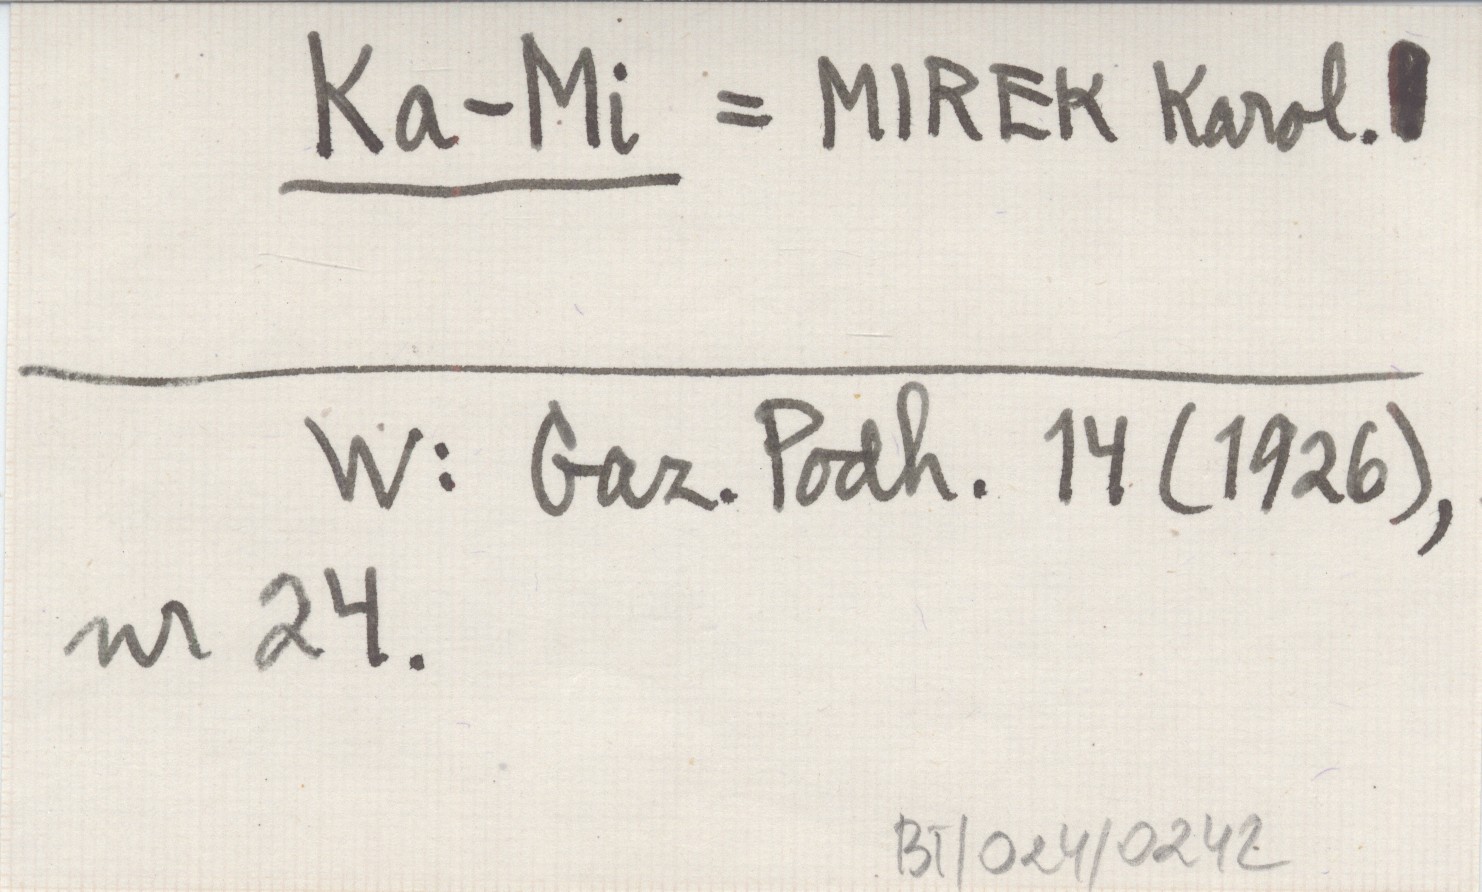 Ka-Mi = MIREK Karol.
W: Gaz. Podh. 14 (1926),
nr 24.
BT/024/0242